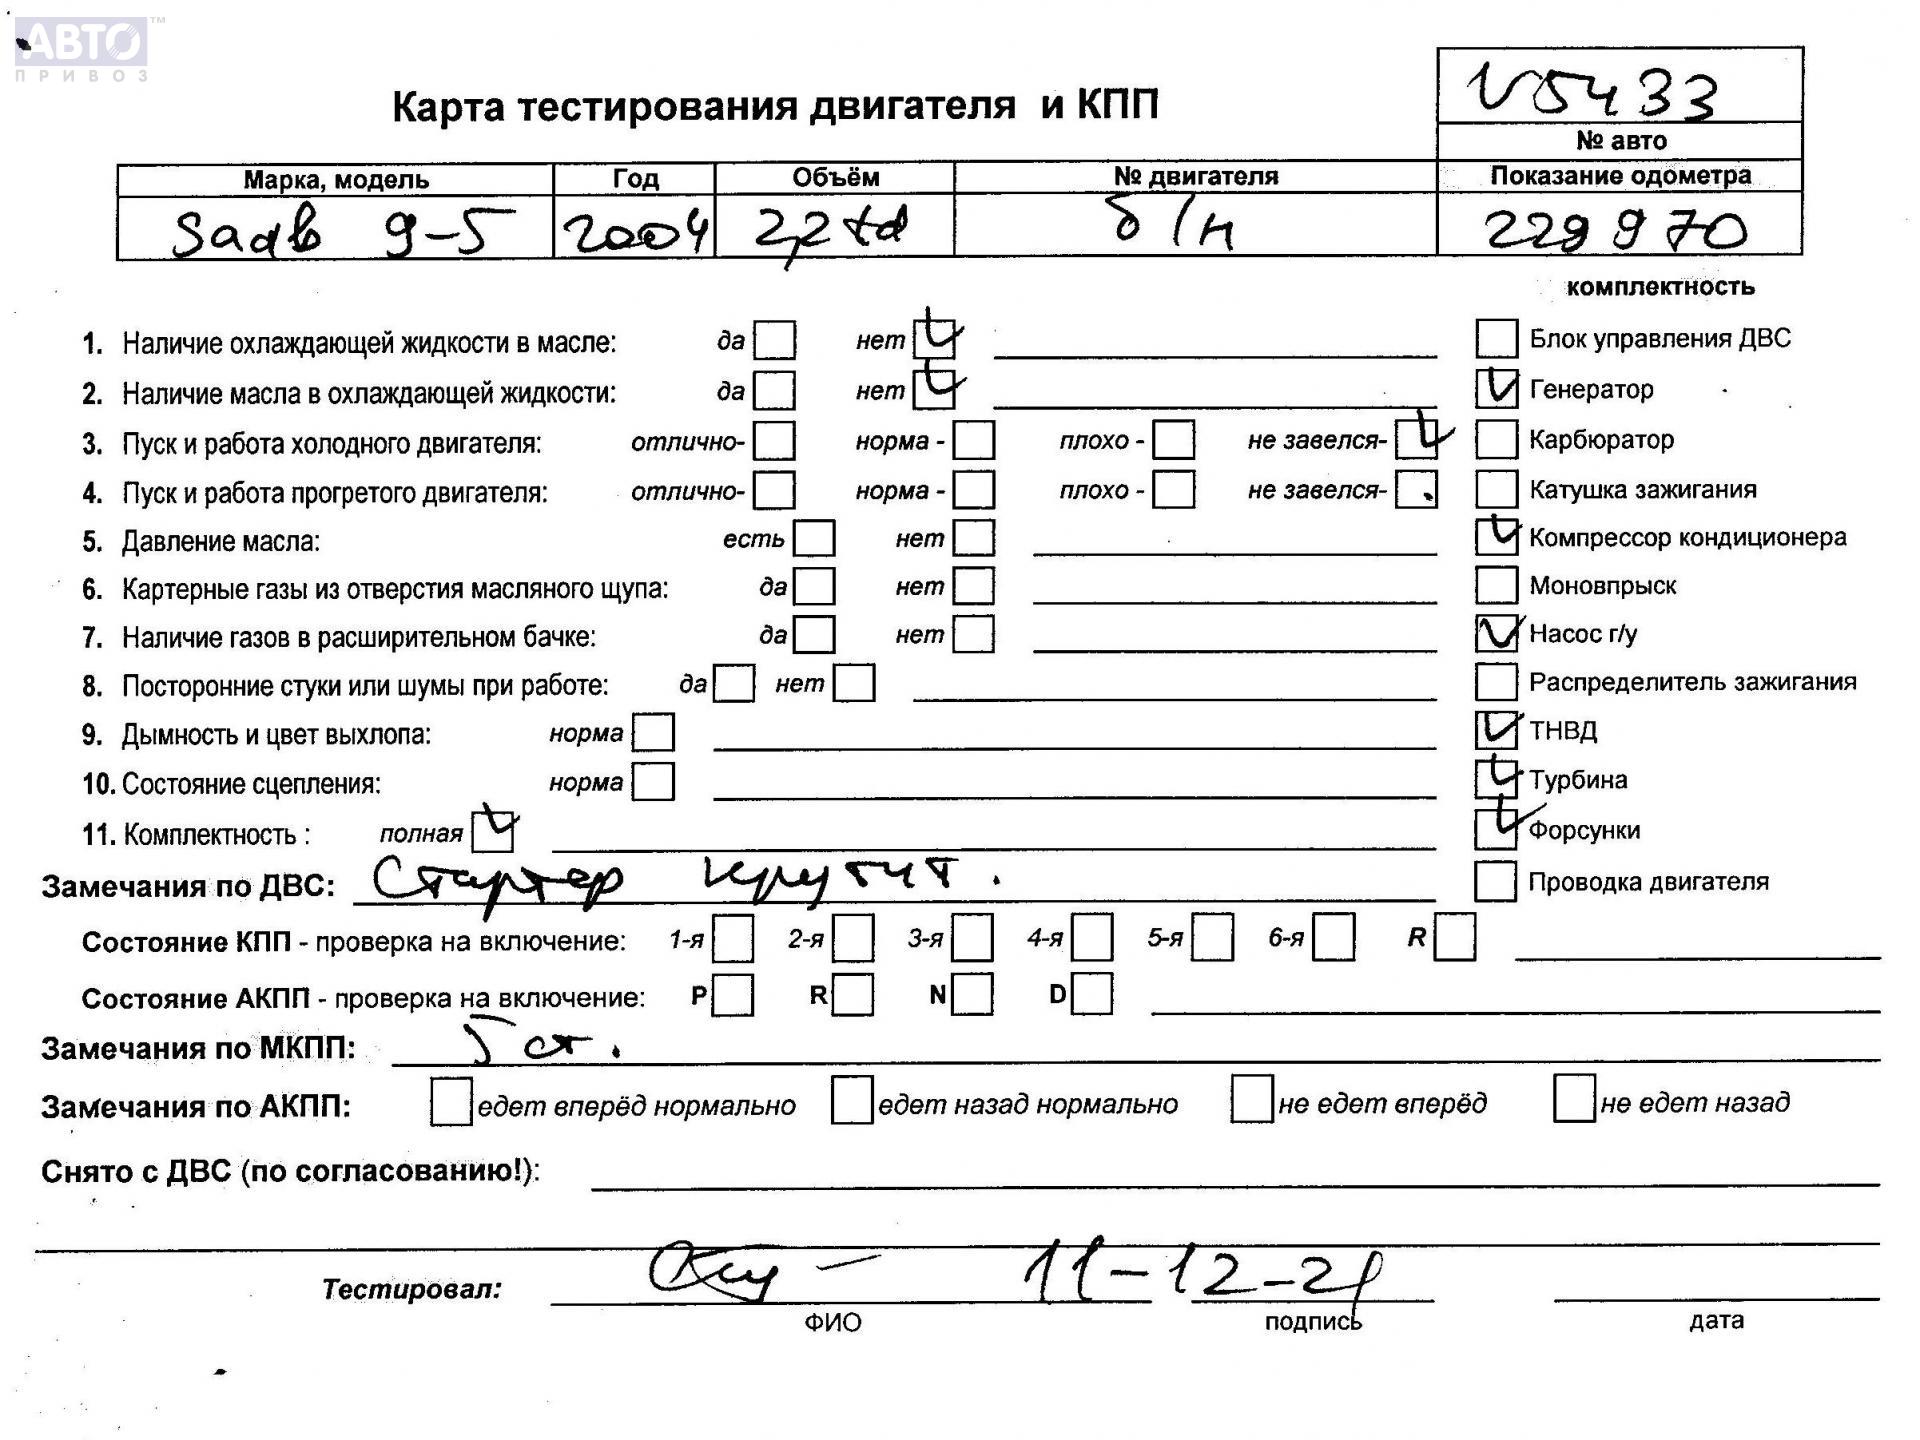 АВТО™
ПРИВОЗ
V5433
Карта тестирования двигателя и КПП
№ авто
Марка, модель Год Объём № двигателя Показание одометра
Saab 9-5 2004 2,2 td б/н 229970
комплектность
1. Наличие охлаждающей жидкости в масле: да нет Блок управления ДВС
2. Наличие масла в охлаждающей жидкости: да нет Генератор
3. Пуск и работа холодного двигателя: отлично- норма - плохо - не завелся- Карбюратор
4. Пуск и работа прогретого двигателя: отлично- норма - плохо - не завелся- Катушка зажигания
5. Давление масла: есть нет Компрессор кондиционера
6. Картерные газы из отверстия масляного щупа: да нет Моновпрыск
7. Наличие газов в расширительном бачке: да нет Насос г/у
8. Посторонние стуки или шумы при работе: да нет Распределитель зажигания
9. Дымность и цвет выхлопа: норма ТНВД
10. Состояние сцепления: норма Турбина
11. Комплектность : полная Форсунки
Замечания по ДВС: Стартер крутит. Проводка двигателя
Состояние КПП - проверка на включение: 1-я 2-я 3-я 4-я 5-я 6-я R
Состояние АКПП - проверка на включение: P R N D
Замечания по МКПП: 5 ст.
Замечания по АКПП: едет вперёд нормально едет назад нормально не едет вперёд не едет назад
Снято с ДВС (по согласованию!):
Тестировал: 11-12-21
ФИО подпись дата